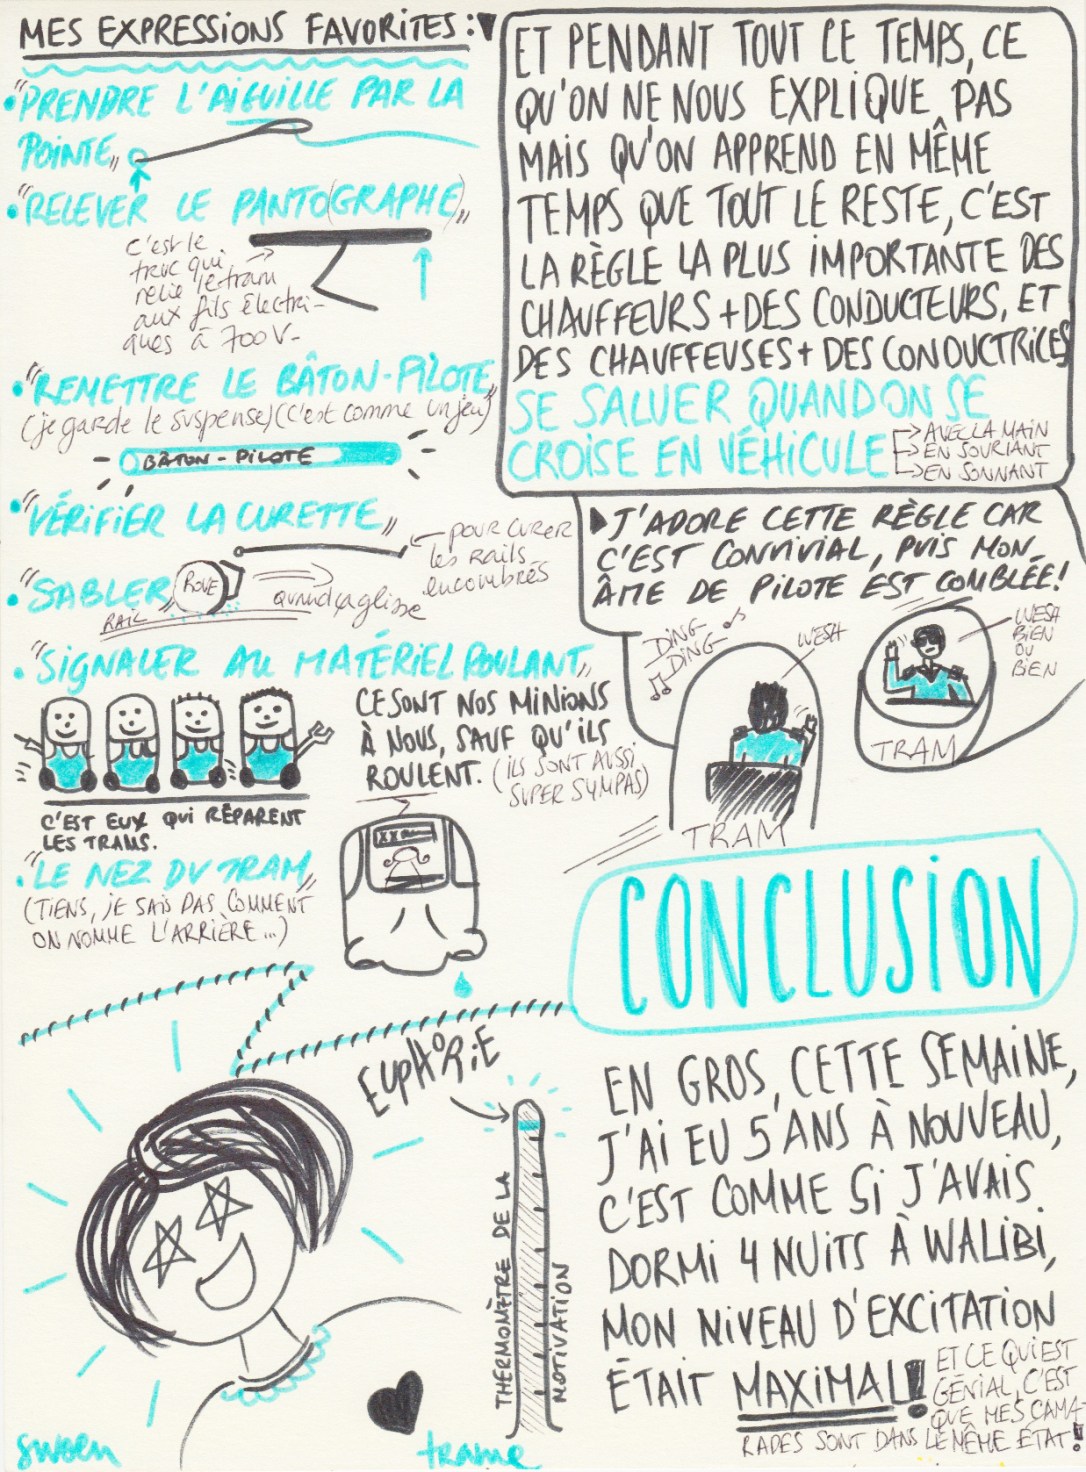 MES EXPRESSIONS FAVORITES :
• "PRENDRE L'AIGUILLE PAR LA
POINTE"
• "RELEVER LE PANTO(GRAPHE)"
c'est le
truc qui
relie le tram
aux fils électri-
ques à 700V-
• "REMETTRE LE BÂTON-PILOTE"
(je garde le suspense) (c'est comme un jeu)
BÂTON-PILOTE
• "VÉRIFIER LA CURETTE"
POUR CURER
les Rails
encombrés
• "SABLER"
ROUE
RAIL
Quand ça glisse
• "SIGNALER AU MATÉRIEL ROULANT"
CE SONT NOS MINIONS
À NOUS, SAUF QU'ILS
ROULENT. (ILS SONT AUSSI
SUPER SYMPAS)
C'EST EUX QUI RÉPARENT
LES TRAMS.
• "LE NEZ DU TRAM"
(TIENS, JE SAIS PAS COMMENT
ON NOMME L'ARRIÈRE...)
ET PENDANT TOUT CE TEMPS, CE
QU'ON NE NOUS EXPLIQUE PAS
MAIS QU'ON APPREND EN MÊME
TEMPS QUE TOUT LE RESTE, C'EST
LA RÈGLE LA PLUS IMPORTANTE DES
CHAUFFEURS + DES CONDUCTEURS, ET
DES CHAUFFEUSES + DES CONDUCTRICES
SE SALUER QUAND ON SE
CROISE EN VÉHICULE
AVEC LA MAIN
EN SOURIANT
EN SONNANT
J'ADORE CETTE RÈGLE CAR
C'EST CONVIVIAL, PUIS MON
ÂME DE PILOTE EST COMBLÉE!
DING
DING
WESH
TRAM
WESH
BIEN
OU
BIEN
TRAM
CONCLUSION
EN GROS, CETTE SEMAINE,
J'AI EU 5 ANS À NOUVEAU,
C'EST COMME SI J'AVAIS
DORMI 4 NUITS À WALIBI,
MON NIVEAU D'EXCITATION
ÉTAIT MAXIMAL!
ET CE QUI EST
GÉNIAL, C'EST
QUE MES CAMA-
RADES SONT DANS LE MÊME ÉTAT!
EUPHORIE
THERMOMÈTRE DE LA
MOTIVATION
swoen
trame